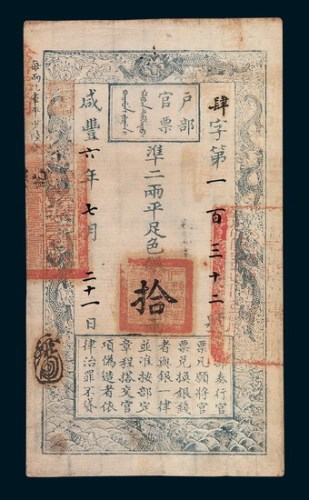 戶部
官票
肆字第一百三十二號
準二兩平足色
拾
咸豐六年七月二十一日
戶部奏行官
票凡願將官
票兌換銀錢
者與銀一律
並准按部定
章程搭交官
項偽造者依
律治罪不貸